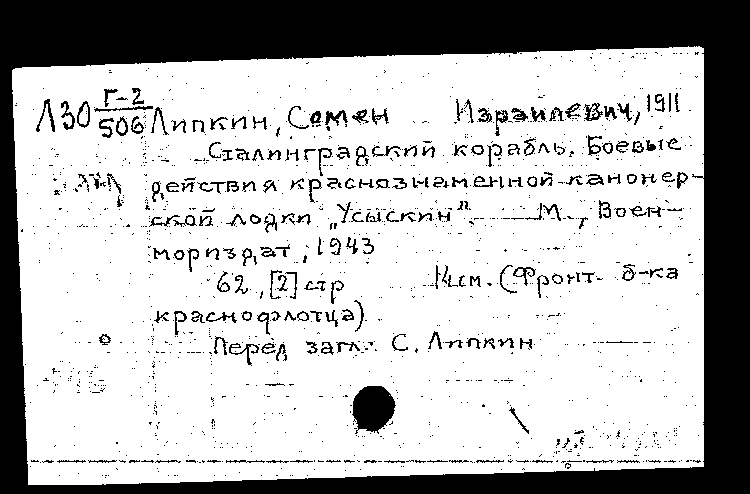 Л30 Г-2/506 Липкин, Семен Израилевич, 1911
Сталинградский корабль. Боевые
действия краснознаменной канонер-
ской лодки „Усыскин". М., Воен-
мориздат, 1943
62, [2] стр 14см. (Фронт. б-ка
краснофлотца)
Перед загл.: С. Липкин